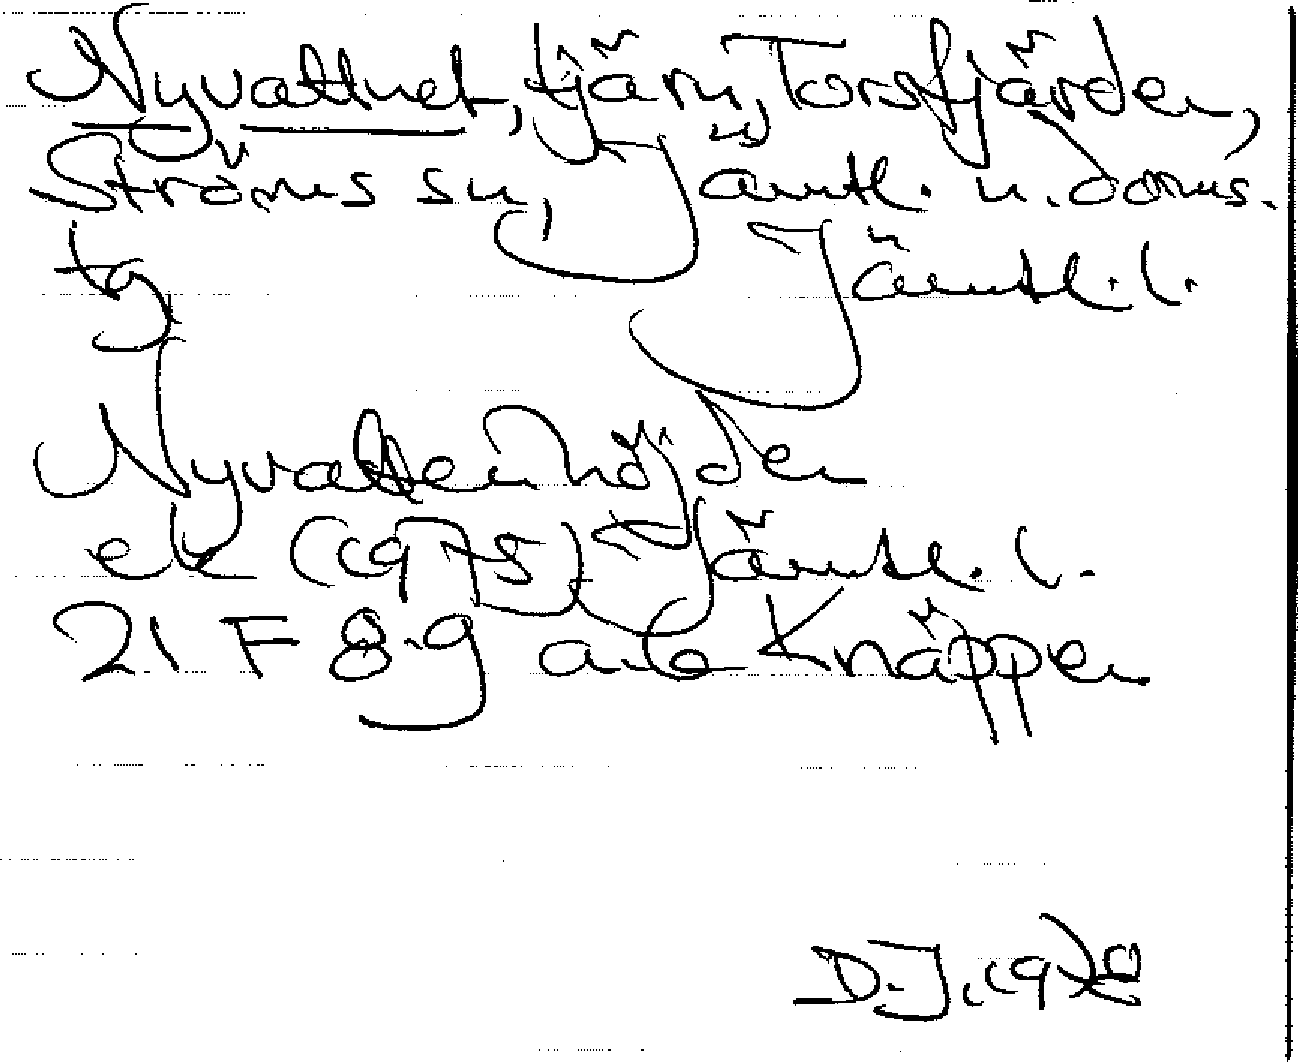 Nyvattnet, tjärn, Torsfjärden,
Ströms sn, Jämtl. n. doms.
tg Jämtl. l.
Nyvattenhöjden
ek (1975) Jämtl. l.
21 F 8-9 a-b Knäppen
D.J.